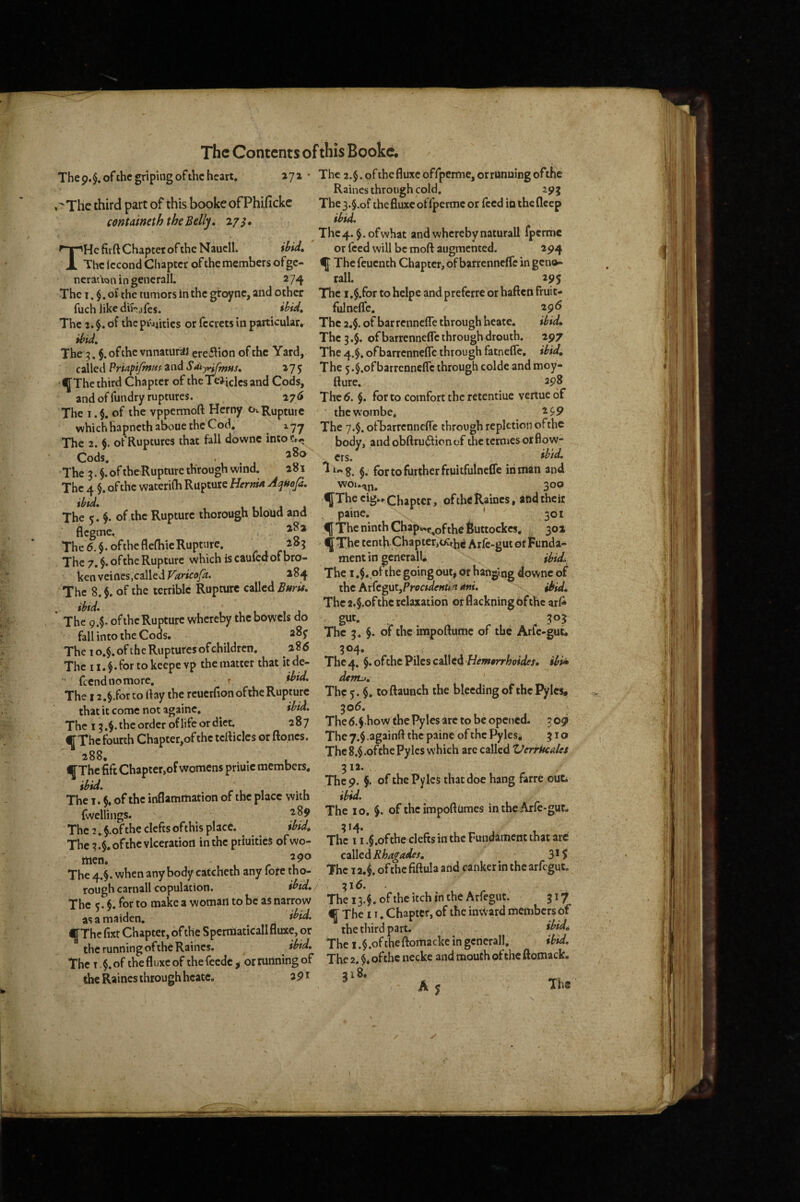 The Contents of this Booke.
The 9.§. of the griping of the heart. 272
The third part of this booke of Phisicke
containeth the Belly. 273.
THe first Chapter of the Nauell. ibid.
The second Chapter of the members of ge-
neration in generall. 274
The 1. §. of the tumors in the groyne, and other
such like diseases. ibid.
The 2. §. of the priuities or secrets in particular.
ibid.
The 3. §. of the vnnaturall erection of the Yard,
called Priapismus and Satyrismus. 275
¶ The third Chapter of the Testicles and Cods,
and of sundry ruptures. 276
The 1. §. of the vppermost Herny or Rupture
which hapneth aboue the Cod. 277
The 2. §. of Ruptures that fall downe into the
Cods. 280
The 3. §. of the Rupture through wind. 281
The 4 §. of the waterish Rupture Hernia Aquosa.
ibid.
The 5. §. of the Rupture thorough bloud and
flegme. 282
The 6. §. of the fleshie Rupture. 283
The 7. §. of the Rupture which is caused of bro-
ken veines, called Varicosa. 284
The 8. §. of the terrible Rupture called Buris.
ibid.
The 9.§. of the Rupture whereby the bowels do
fall into the Cods. 285
The 10.§. of the Ruptures of children. 286
The 11. §. for to keepe vp the matter that it de-
scend no more. ibid.
The 12.§. for to stay the reuersion of the Rupture
that it come not againe. ibid.
The 13.§. the order of life or diet. 287
¶ The fourth Chapter, of the testicles or stones.
288.
¶ The fift Chapter, of womens priuie members.
ibid.
The 1. §. of the inflammation of the place with
swellings. 289
The 2. §. of the clefts of this place. ibid.
The 3.§. of the vlceration in the priuities of wo-
men. 290
The 4.§. when any body catcheth any sore tho-
rough carnall copulation. ibid.
The 5. §. for to make a woman to be as narrow
as a maiden. ibid.
¶ The sixt Chapter, of the Spermaticall fluxe, or
the running of the Raines. ibid.
The 1 §. of the fluxe of the seede, or running of
the Raines through heate. 291
The 2.§. of the fluxe of sperme, or running of the
Raines through cold. 293
The 3.§. of the fluxe of sperme or seed in the sleep
ibid.
The 4. §. of what and whereby naturall sperme
or seed will be most augmented. 294
¶ The seuenth Chapter, of barrennesse in gene-
rall. 295
The 1.§. for to helpe and preferre or hasten fruit-
fulnesse. 296
The 2.§. of barrennesse through heate. ibid.
The 3.§. of barrennesse through drouth. 297
The 4.§. of barrennesse through fatnesse. ibid.
The 5.§. of barrennesse through colde and moy-
sture. 298
The 6. §. for to comfort the retentiue vertue of
the wombe. 299
The 7.§. of barrennesse through repletion of the
body, and obstruction of the termes or flow-
ers. ibid.
The 8. §. for to further fruitfulnesse in man and
woman. 300
¶ The eight Chapter, of the Raines, and their
paine. 301
¶ The ninth Chapter, of the Buttockes. 302
¶ The tenth Chapter, of the Arse-gut or Funda-
ment in generall. ibid.
The 1.§. of the going out, or hanging downe of
the Arsegut, Procidentia ani. ibid.
The 2.§. of the relaxation or slackning of the arse
gut. 303
The 3. §. of the impostume of the Arse-gut.
304.
The 4. §. of the Piles called Hemorrhoides. ibi-
dem.
The 5. §. to staunch the bleeding of the Pyles.
306.
The 6.§. how the Pyles are to be opened. 309
The 7.§. against the paine of the Pyles. 310
The 8.§. of the Pyles which are called Verrucales
312.
The 9. §. of the Pyles that doe hang farre out.
ibid.
The 10. §. of the impostumes in the Arse-gut.
314.
The 11.§. of the clefts in the Fundament that are
called Rhagades. 315
The 12.§. of the fistula and canker in the arsegut.
316.
The 13.§. of the itch in the Arsegut. 317
¶ The 11. Chapter, of the inward members of
the third part. ibid.
The 1.§. of the stomacke in generall. ibid.
The 2. §. of the necke and mouth of the stomack.
318.
A 5
The